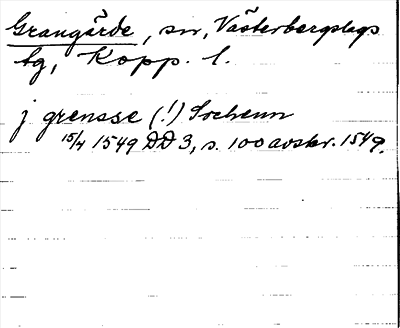 Grangärde, sn, Västerbergslags
tg, Kopp. l.
j grensse (!) Sochenn
15/4 1549 DD 3, s. 100 avskr. 1549.